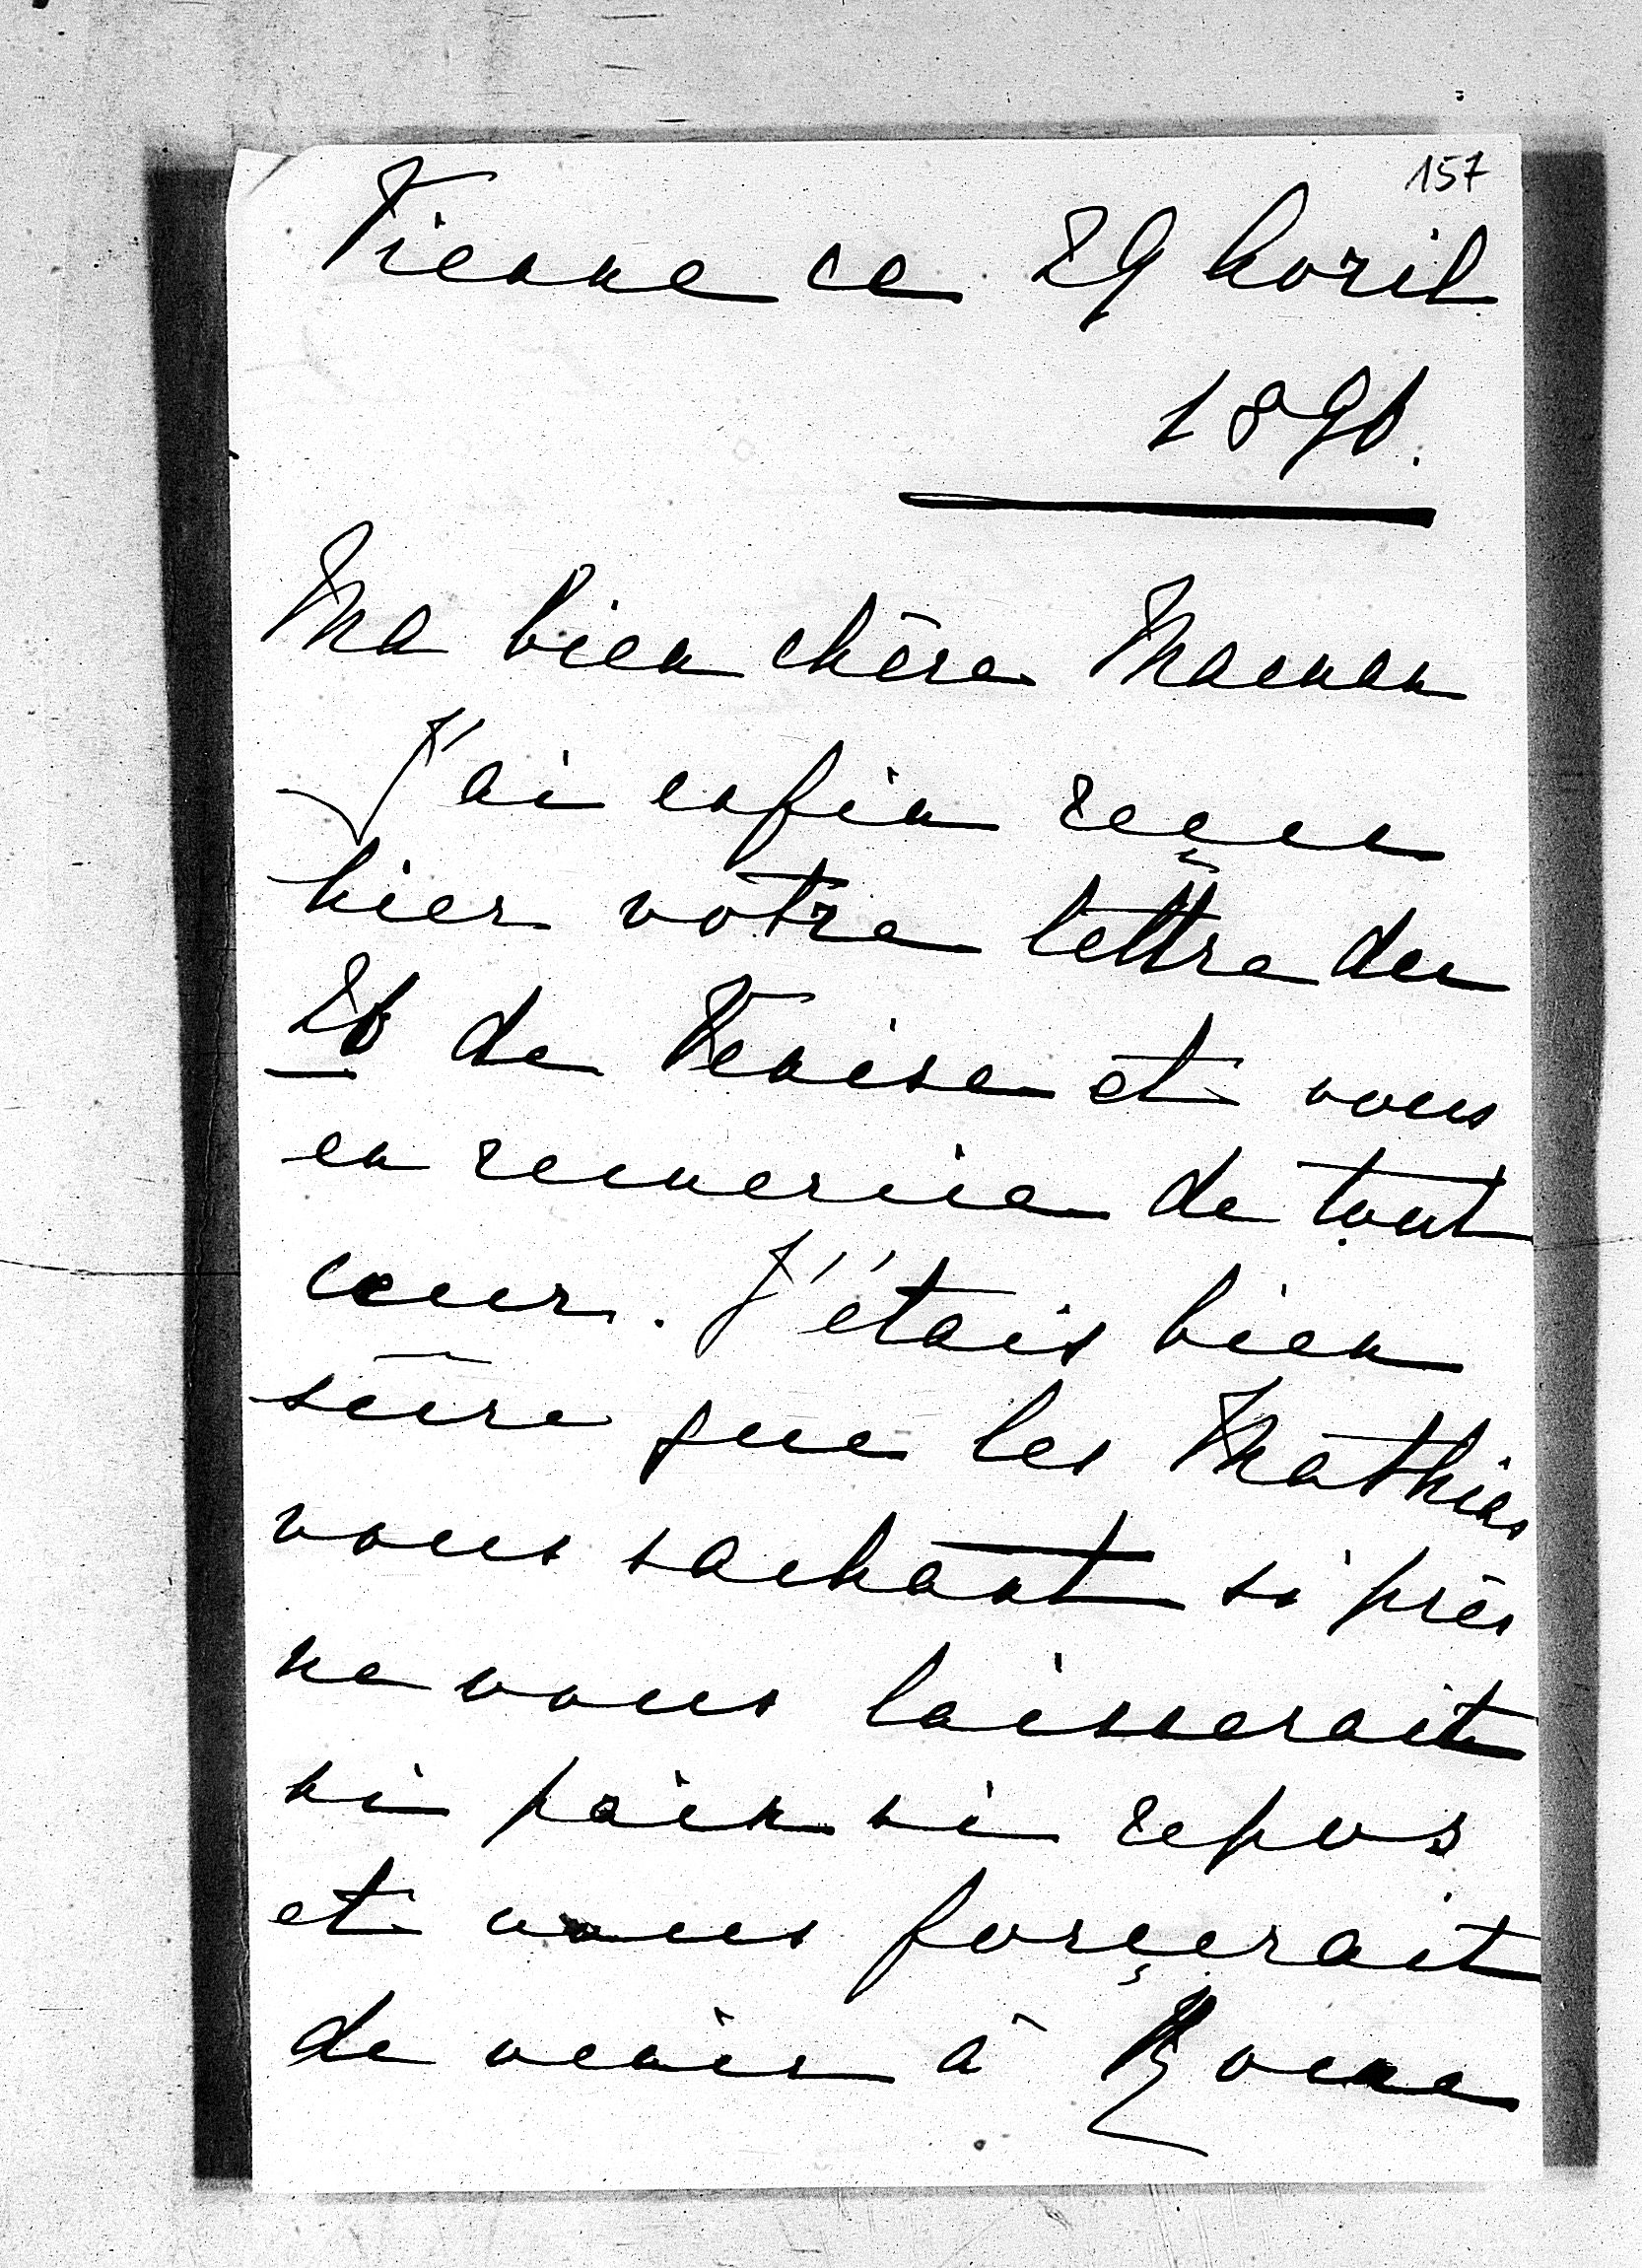 157
Vienne ce 29 Avril
1896.
Ma bien chère Maman
J'ai enfin reçue
hier votre lettre du
26 de Venise et vous
en remercie de tout
cœur. J'étais bien
sûre que les Mathias
vous sachant si près
ne vous laisserait
ni paix ni repos
et vous forçerait
de venir à Rome